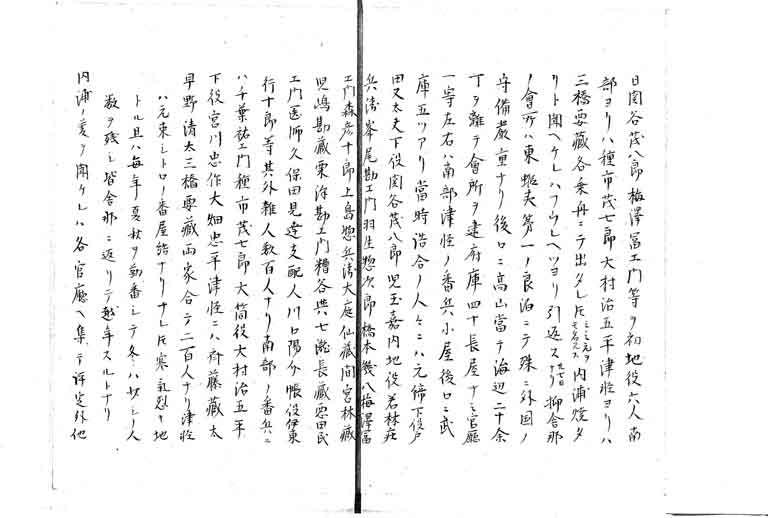 日関谷茂八郎梅澤冨エ門等ヲ初地役六人南
部ヨリハ種市茂七郎大村治五平津軽ヨリハ
三橋要藏各乗舟ニテ出タレ𪜈ミミ元ヲモ名ス久内浦焼タ
リト聞ヘケレハフウレヘツヨリ引返スナリ廿七日抑舎那
ノ會所ハ東蝦夷第一ノ良泊ニテ殊ニ外国ノ
守備嚴重ナリ後ロニ高山當テ海辺二十余
丁ヲ離テ會所ヲ建府庫四十長屋ナミ官廳
一等左右ハ南部津軽ノ番兵小屋後ロニ武
庫五ツアリ當時詰合ノ人々ニハ元締下役戸
田又太夫下役関谷茂八郎児玉嘉内地役若林荘
兵濤峯尾勘エ門羽生惣次郎橋本幾八梅澤冨
エ門森彦十郎上島惣兵濤大庭仙藏間宮林藏
児嶋勘藏粟津勘エ門糟谷與七瀧長藏恩田民
エ門医師久保田見達支配人川口陽介帳役伊東
行十郎等其外雜人数百人ナリ南部ノ番兵ニ
ハ千葉祐エ門種市茂七郎大筒役大村治五平
下役宮川忠作大畑忠平津軽ニハ斉藤藏太
早野清太三橋要藏両家合テ二百人ナリ津軽
ハ元来シトロノ番屋詰ナリナレ𪜈寒氣烈ケ地
トル且ハ毎年夏秋ヲ勤番シテ冬ハ少シノ人
数ヲ残シ皆舎那ニ返リテ越年スルトナリ
内浦ノ変ヲ聞ケレハ各官廳ヘ集テ評定外他